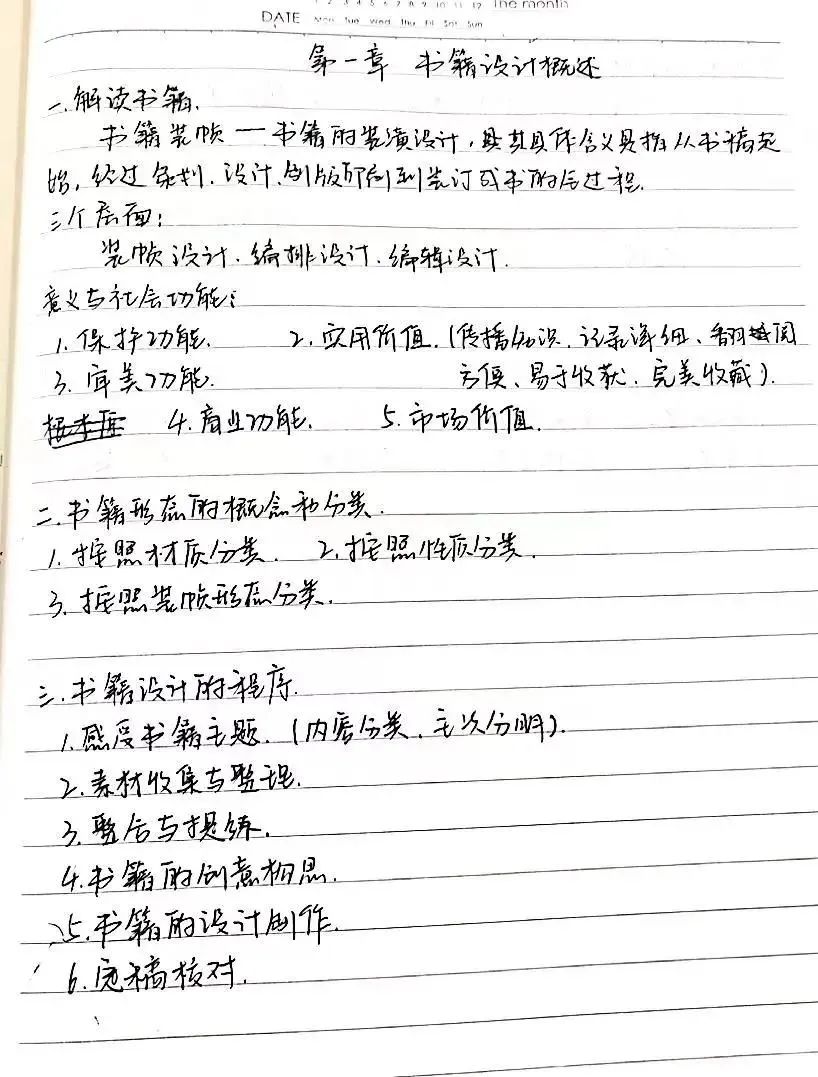 1 2 3 4 5 6 7 8 9 10 11 12 The month
DATE Mon Tue Wed Thu Fri Sat Sun
第一章 书籍设计概述
一.解读书籍.
书籍装帧一书籍的装潢设计,其具体含义是指从书稿起
始,经过策划.设计.制版印刷到装订成书的后过程.
三个层面:
装帧设计.编排设计.编辑设计.
意义与社会功能:
1.保护功能. 2.实用价值.(传播知识.记录详细、翻阅
3.审美功能. 方便、易于收获.完美收藏).
4.商业功能. 5.市场价值.
二.书籍形态的概念和分类.
1.按照材质分类. 2.按照性质分类.
3.按照装帧形态分类.
三.书籍设计的程序.
1.感受书籍主题.(内容分类、主次分明).
2.素材收集与整理.
3.整合与提练.
4.书籍的创意构思.
5.书籍的设计制作.
6.完稿核对.